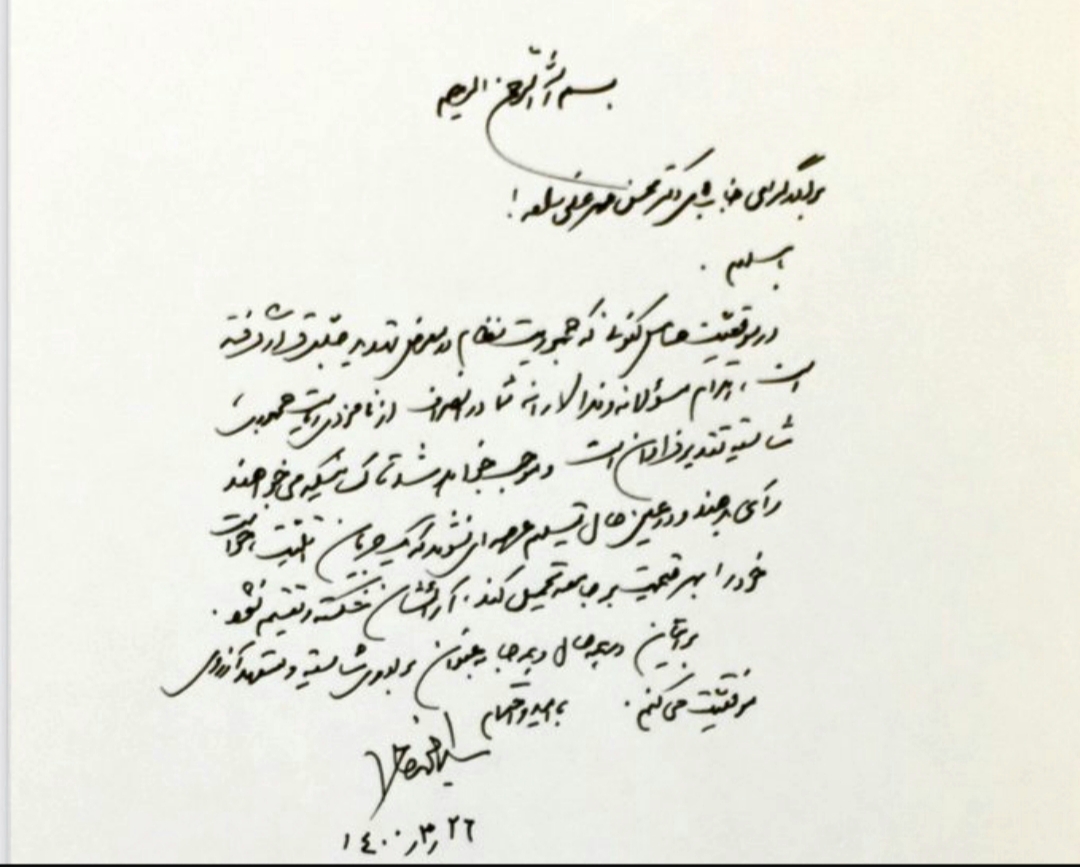 بسم الله الرحمن الرحیم
برادر گرامی جناب آقای دکتر محسن مهرعلیزاده!
با سلام.
در موقعیت حساس کنونی که جمهوریت نظام در معرض تهدید جدی قرار گرفته
است، اقدام مسؤلانه و فداکارانه شما در انصراف از نامزدی ریاست جمهوری
شایسته تقدیر فراوان است و موجب خواهد شد تا کسانیکه می‌خواهند
رأی بدهند و در عین حال تسلیم عرصه‌ای نشوند که یک جریان اقلیت، خواست
خود را به هر قیمت بر جامعه تحمیل کند. آرائشان شکسته و تقسیم نشود.
برایتان در همه حال و همه جا به عنوان برادری شایسته و متعهد آرزوی
موفقیت می‌کنم. با امید و احترام
سید محمد خاتمی
۱۴۰۰ر۳ر۲۶